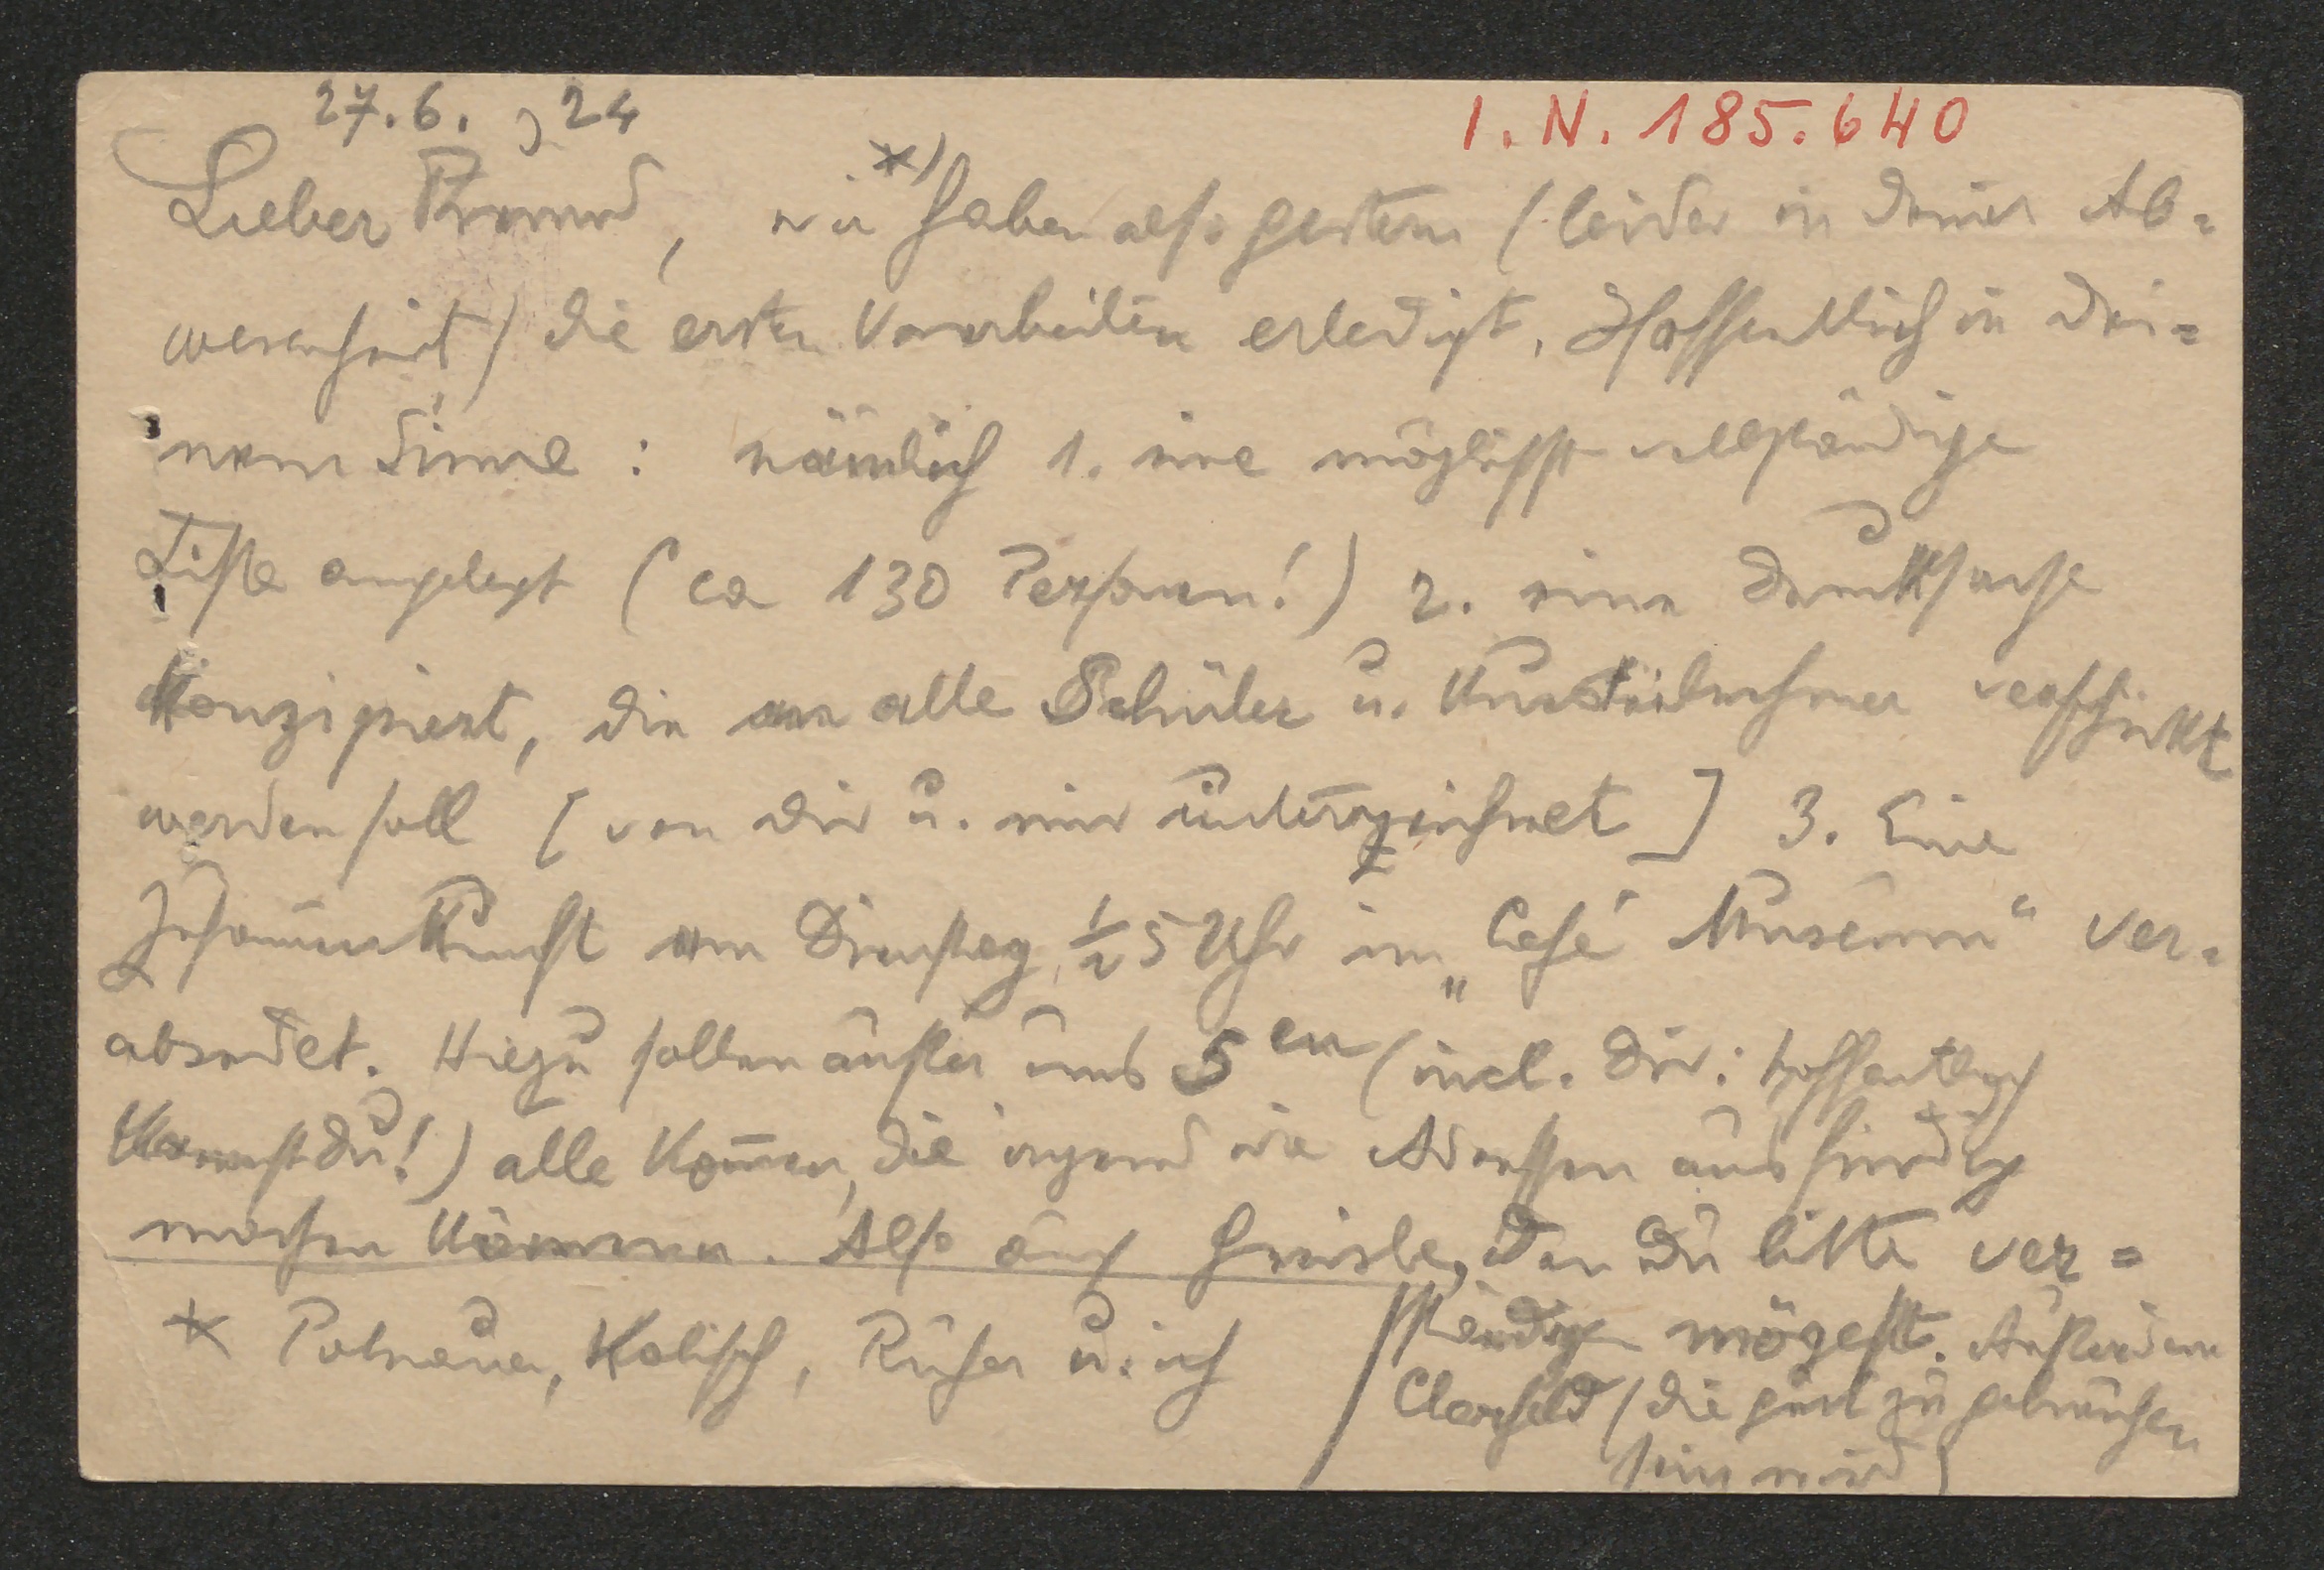 27.6.24
I.N. 185.640
Lieber Freund, wir *) haben also gestern (leider in deiner Ab=
wesenheit) die ersten Vorarbeiten erledigt. Hoffentlich in Dei=
nem Sinne: nämlich 1. eine möglichst vollständige
Liste angelegt (ca 130 Personen!) 2. eine Drucksache
konzipiert, die an alle Schüler u. Kursteilnehmer verschickt
werden soll [von dir u. mir unterzeichnet] 3. Eine
Zusammenkunft am Dienstag, ½5 Uhr im „Café Museum“ ver=
abredet. Hiezu sollen außer uns 5en (incl. Dir: hoffentlich
kannst du!) alle kom̄en, die irgend wie Adressen ausfindig
machen können. Also auch Greissle, den Du bitte ver=
ständigen mögest. Außerdem
Clarfeld (die gut zu gebrauchen
sein wird)
* Polnauer, Kolisch, Rufer u. ich